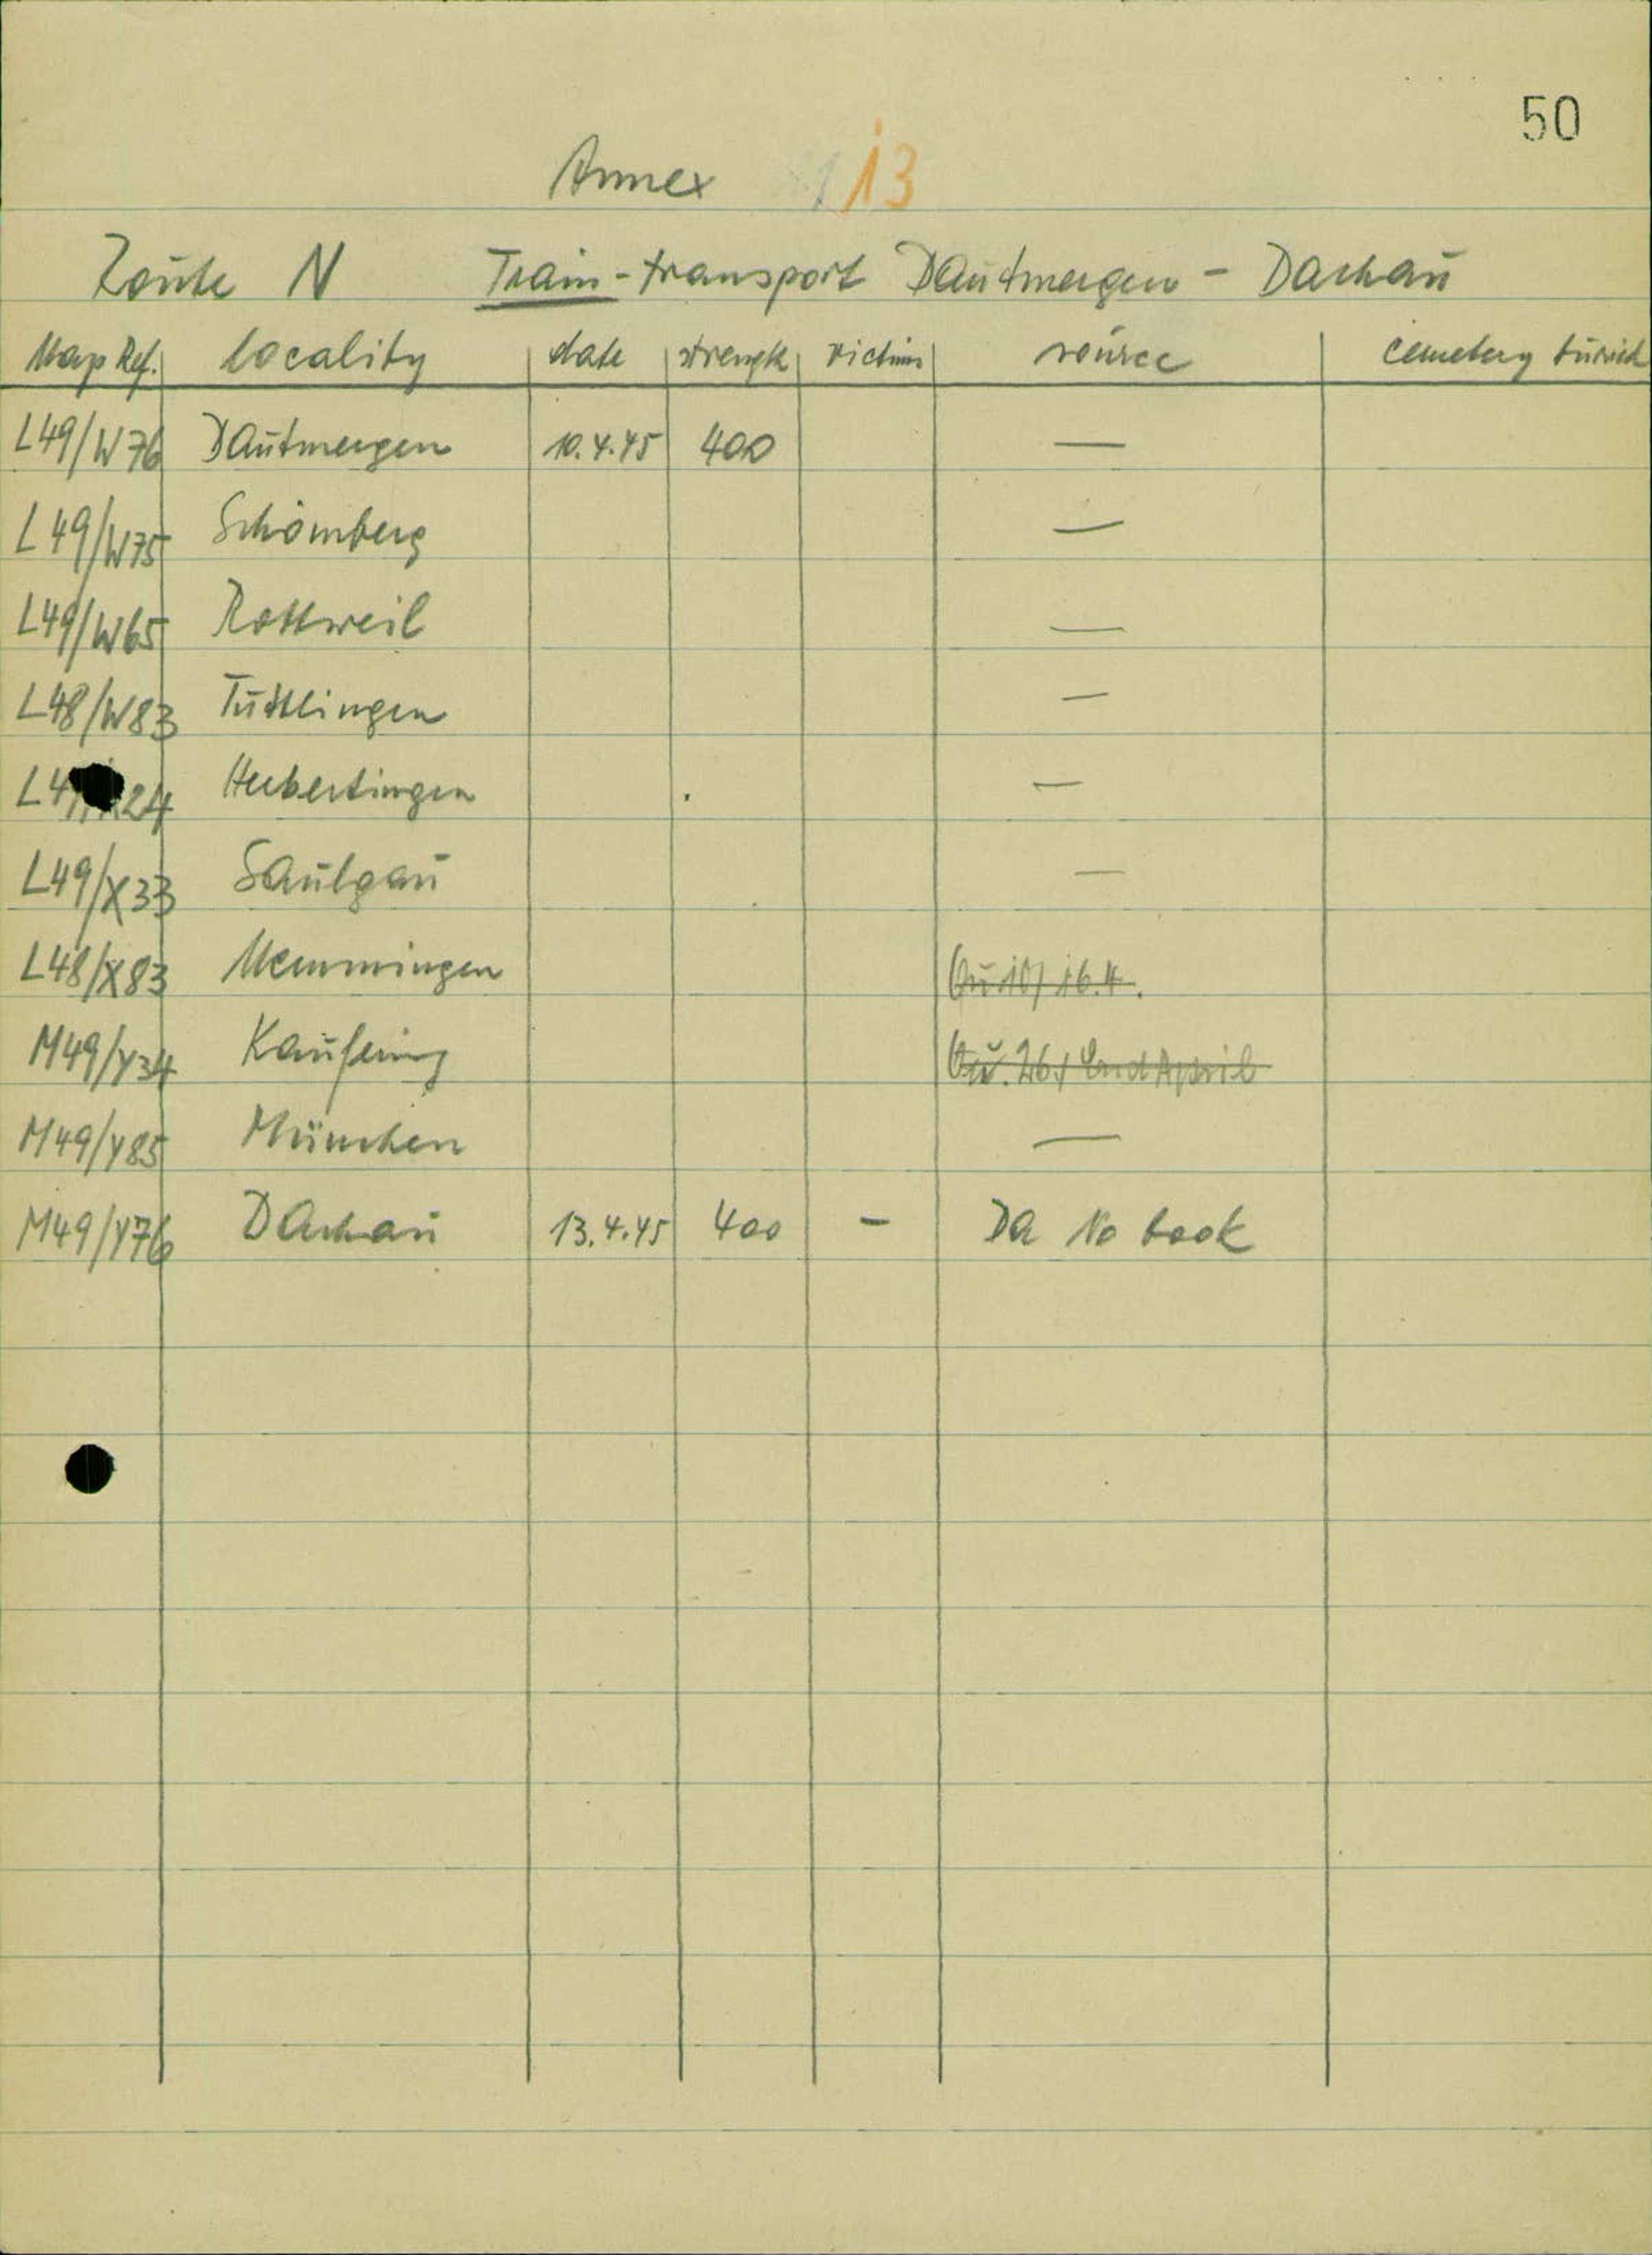 50
Annex 13
Route N Train-transport Dautmergen - Dachau
Map Ref. locality date strength victims source cemetery burial
L49/W76 Dautmergen 10.4.45 400 —
L49/W75 Schömberg —
L49/W65 Rottweil —
L48/W83 Tuttlingen —
L4 24 Herbertingen —
L49/X33 Saulgau —
L48/X83 Memmingen Qu 10/ 16.4.
M49/Y34 Kaufering Qu. 26/ End April
M49/Y85 München —
M49/Y76 Dachau 13.4.45 400 - Da No book